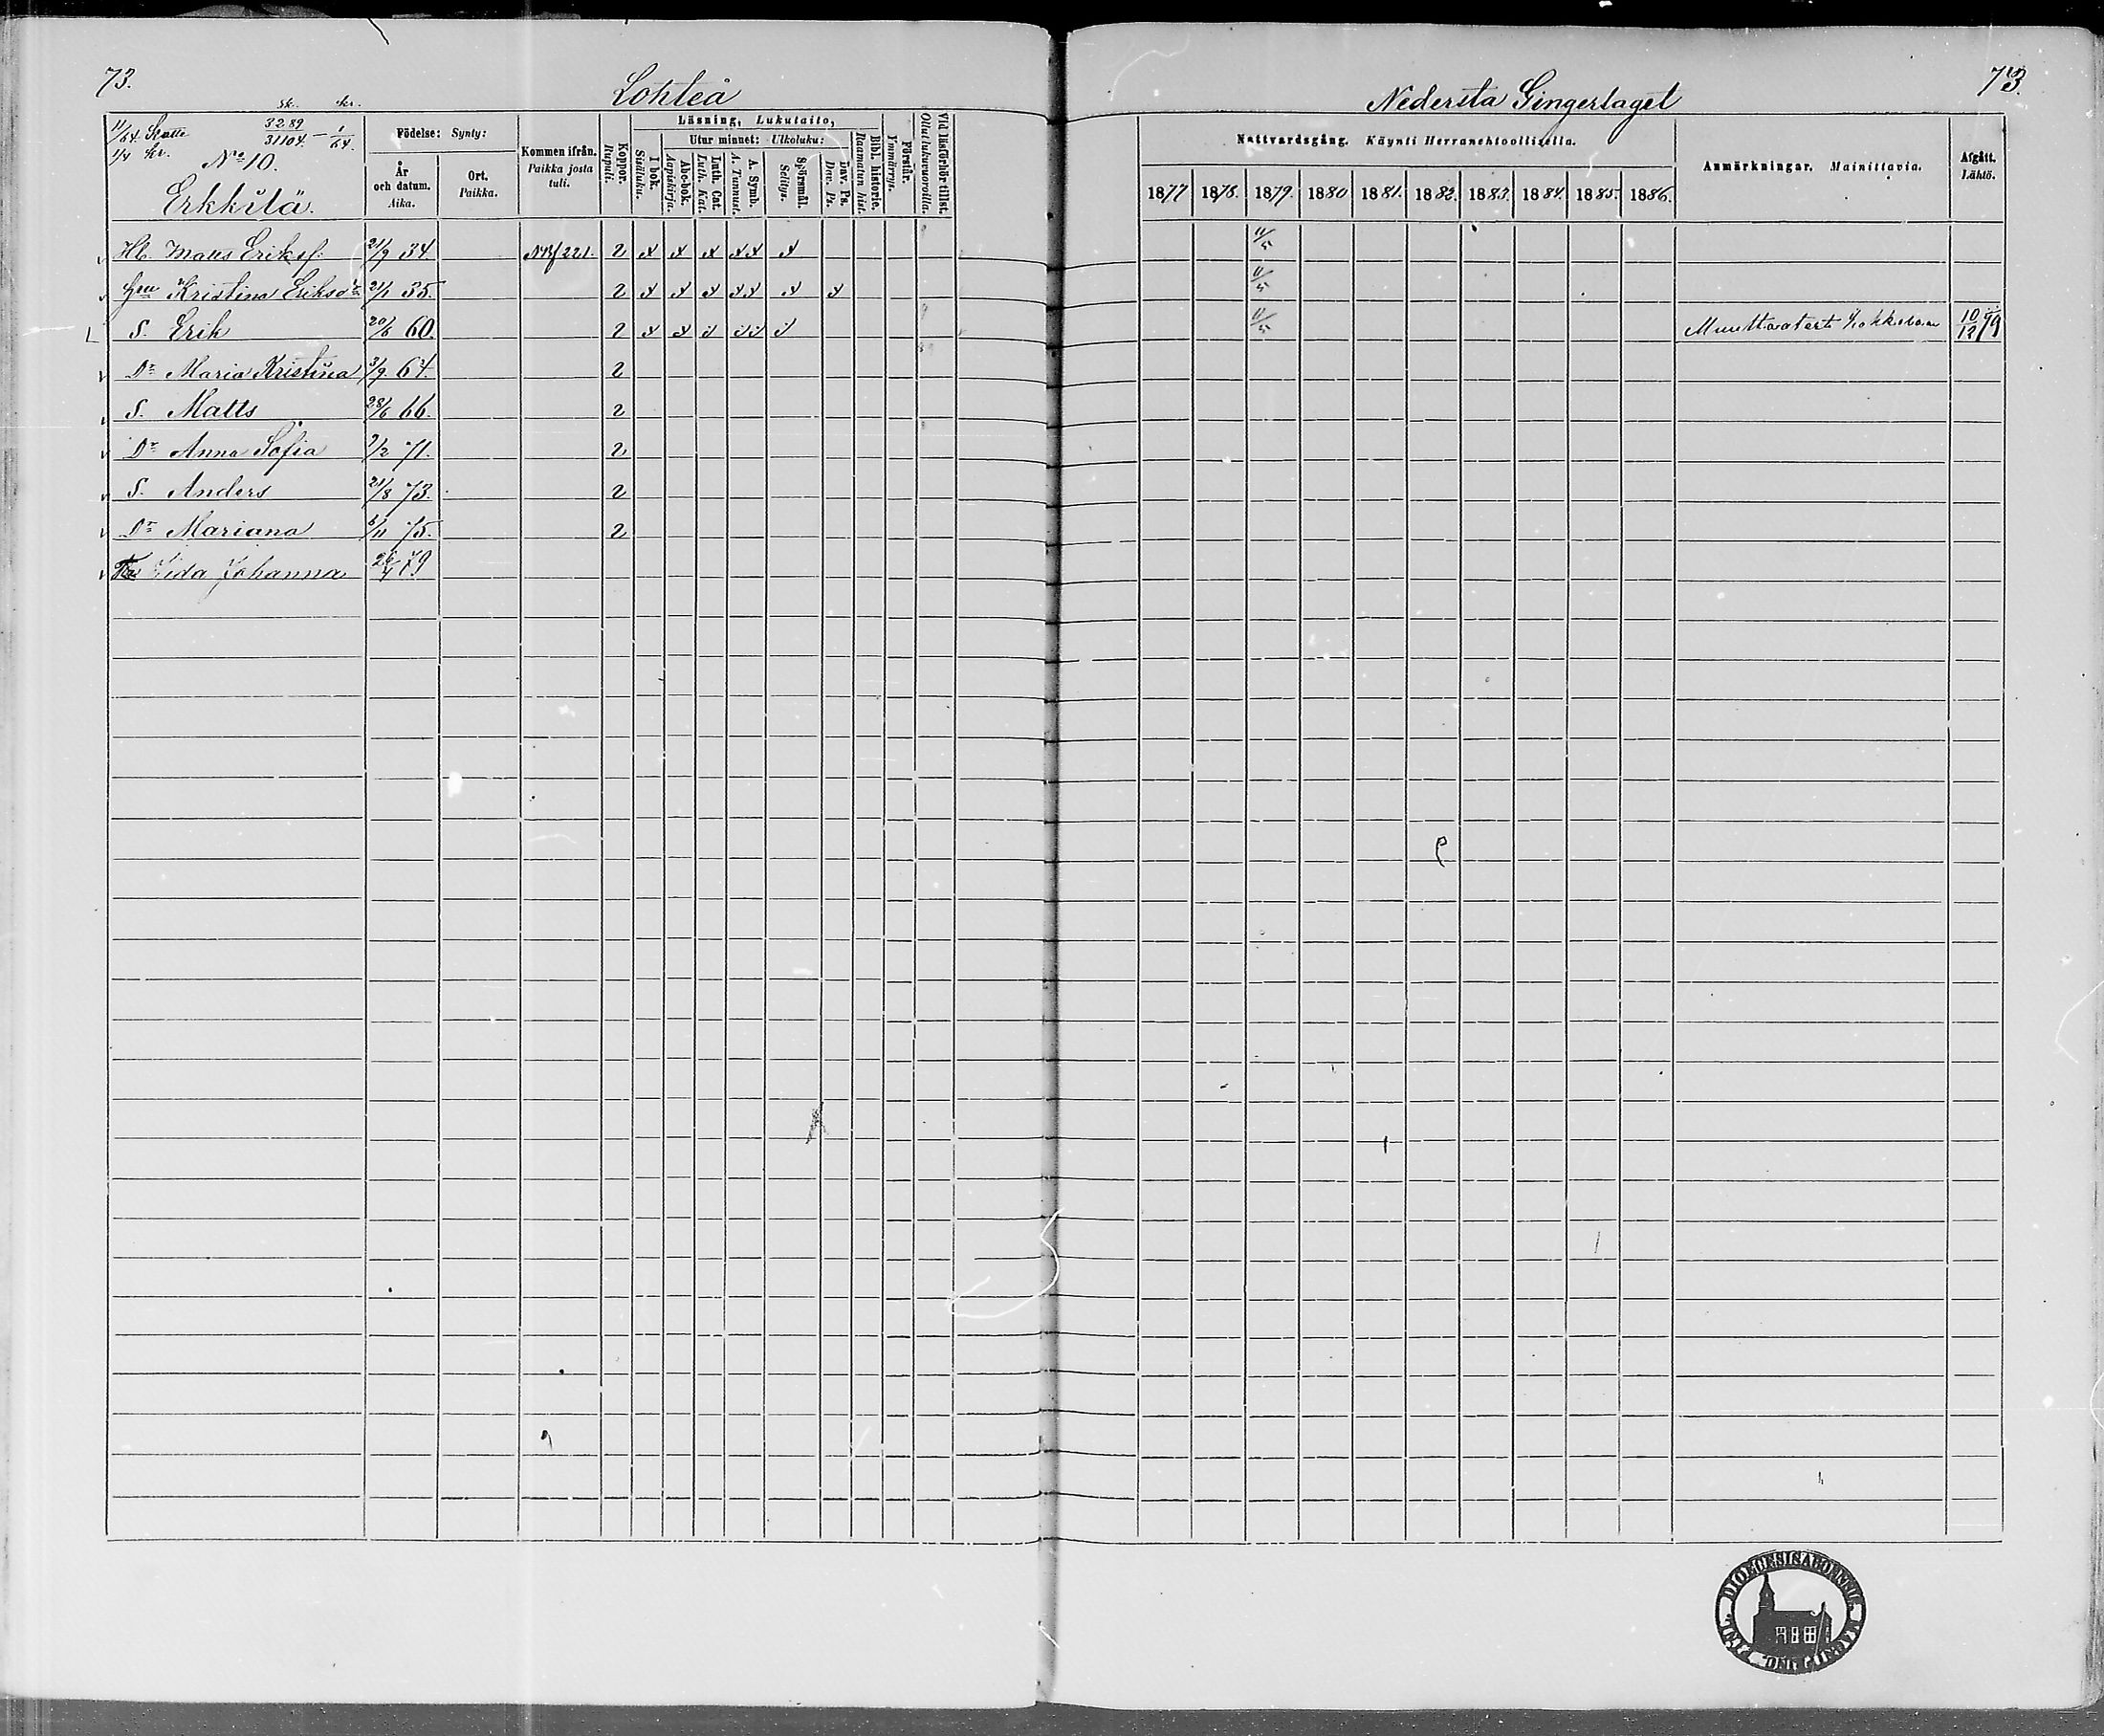 73.
Lohteå
Nedersta Gingerlaget
73.
sk. kr.
11/64 Skatte 32.89/31104. — 1/64.
1/4 kr.
No 10.
Erkkilä.
Födelse: Synty:
År och datum. Aika.
Ort. Paikka.
Kommen ifrån. Paikka josta tuli.
Koppor. Rupuli.
Läsning, Lukutaito,
I bok. Sisäluku.
Utur minnet: Ulkoluku:
Abc-bok. Aapiskirja.
Luth. Cat. Luth. Kat.
A. Symb. A. Tunnust.
Spörsmål. Selitys.
Dav. Ps. Dav. Ps.
Bibl. historie. Raamatun hist.
Förstår. Ymmärrys.
Vid läsförhör tillst. Ollut lukuvuorolla.
Nattvardsgång. Käynti Herranehtoollisella.
1877 1878. 1879. 1880 1881. 1882. 1883. 1884. 1885. 1886.
Anmärkningar. Mainittavia.
Afgått. Lähtö.
Hb. Matts Eriksf. 21/9 34 221. 2 11/5
Kristina Eriksdr 21/1 35. 2 11/5
S. Erik 20/6 60. 2 11/5 10/12 79
Dr Maria Kristina 3/9 64. 2
S. Matts 28/6 66. 2
Dr Anna Sofia 7/2 71. 2
S. Anders 21/8 73. 2
Dr Mariana 6/11 75. 2
Iida Johanna 26/4 79